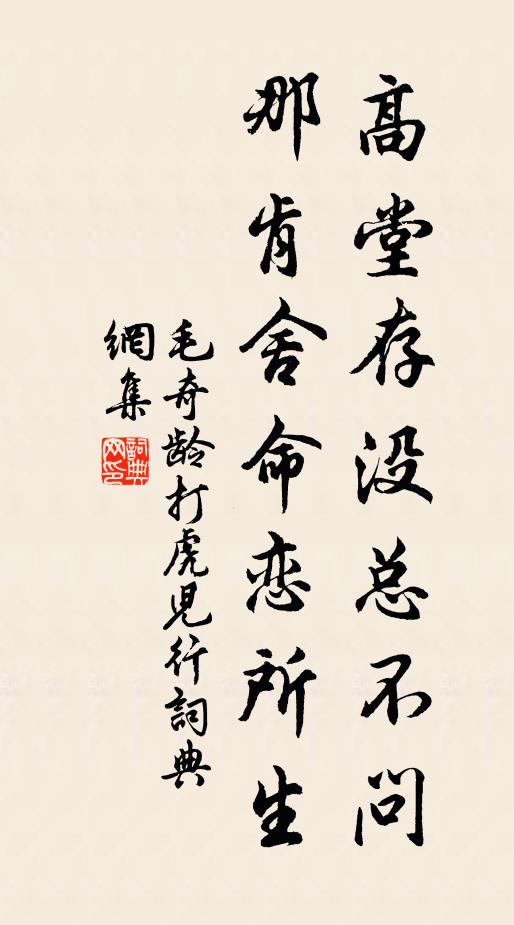 高堂存没总不问
那肯舍命恋所生
毛奇龄打虎児行詞典
網集
詞典
网印